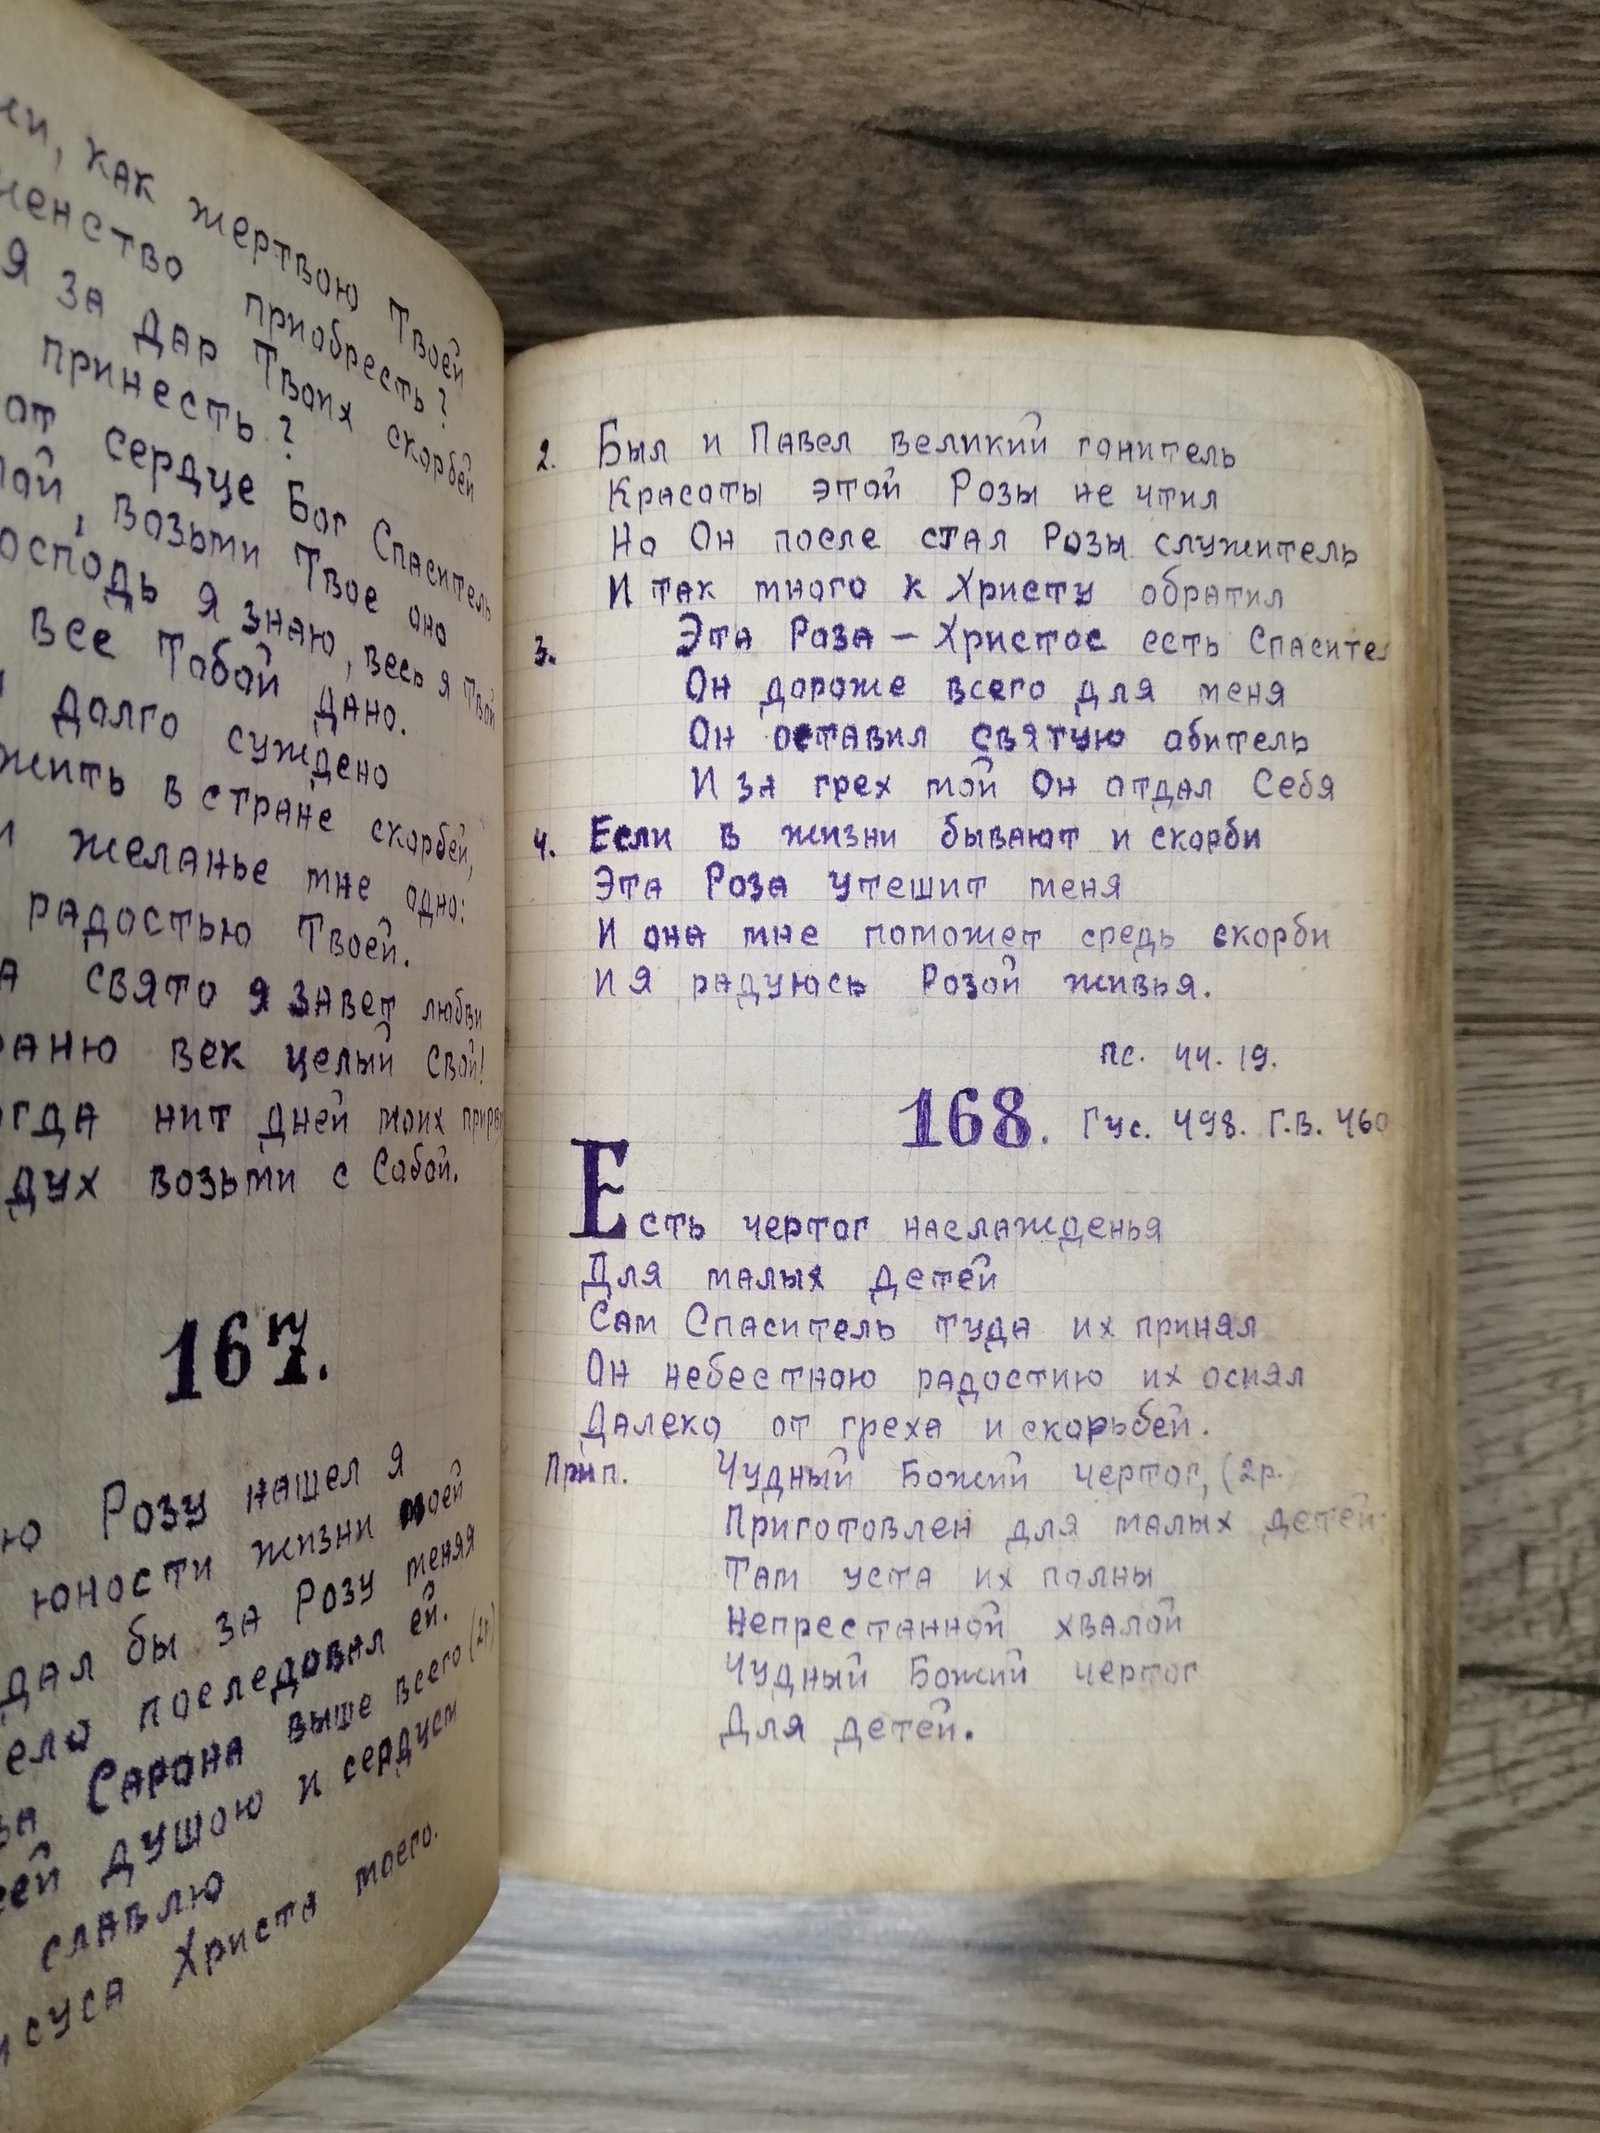 как жертвою Твоей
приобресть?
Я за дар Твоих скорбей
принесть?
от сердце Бог Спаситель
возьми Твое оно
Я знаю, весь я Твой
все Тобой дано.
долго суждено
жить в стране скорбей,
желанье мне одно:
радостью Твоей.
свято я завет любви
век целый свой!
нит дней моих
дух возьми с Собой.
167.
Розу нашел я
юности жизни моей
дал бы за Розу меняя
последовал ей.
Сарона выше всего (2р)
душою и сердцем
славлю
Христа моего.
2. Был и Павел великий гонитель
Красоты этой Розы не чтил
Но Он после стал Розы служитель
И так много к Христу обратил
3. Эта Роза – Христос есть Спасител
Он дороже всего для меня
Он оставил святую обитель
И за грех мой Он отдал Себя
4. Если в жизни бывают и скорби
Эта Роза утешит меня
И она мне поможет средь скорби
И Я радуюсь Розой живья.
пс. 44. 19.
168. Гус. 498. Г.В. 460
Есть чертог наслажденья
Для малых детей
Сам Спаситель туда их принял
Он небестною радостию их осиял
Далеко от греха и скорьбей.
Прип. Чудный Божий чертог, (2р.
Приготовлен для малых детей
Там уста их полны
Непрестанной хвалой
Чудный Божий чертог
Для детей.